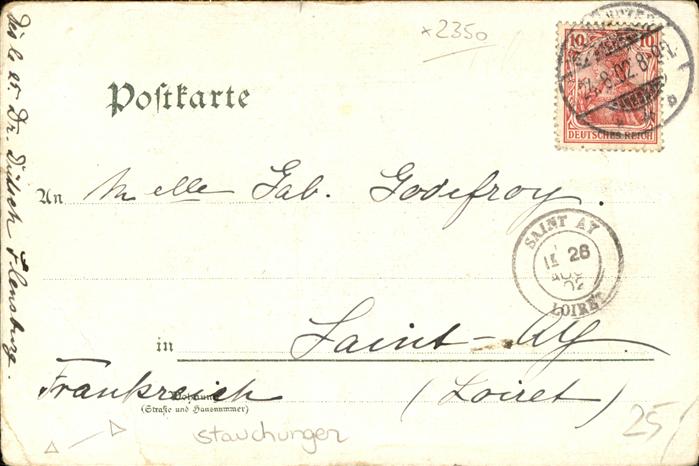 ×2350
10 10
23.8.02.8-9V.
DEUTSCHES REICH
Postkarte
An Melle Gab. Godefroy.
SAINT AY
28
AOU
02
LOIRET
in Saint-Ay.
Frankreich (Loiret)
Wohnung
(Straße und Hausnummer)
stauchungen
25
bis 25. Dr. Flensburg.